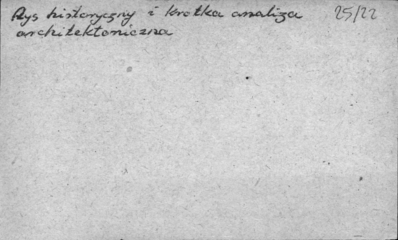 Rys historyczny i krótka analiza 25/22
architektoniczna